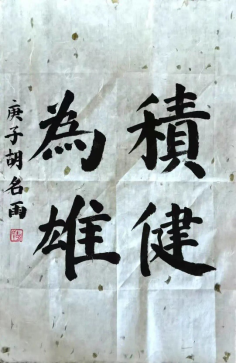 積健
為雄
庚子胡名雨